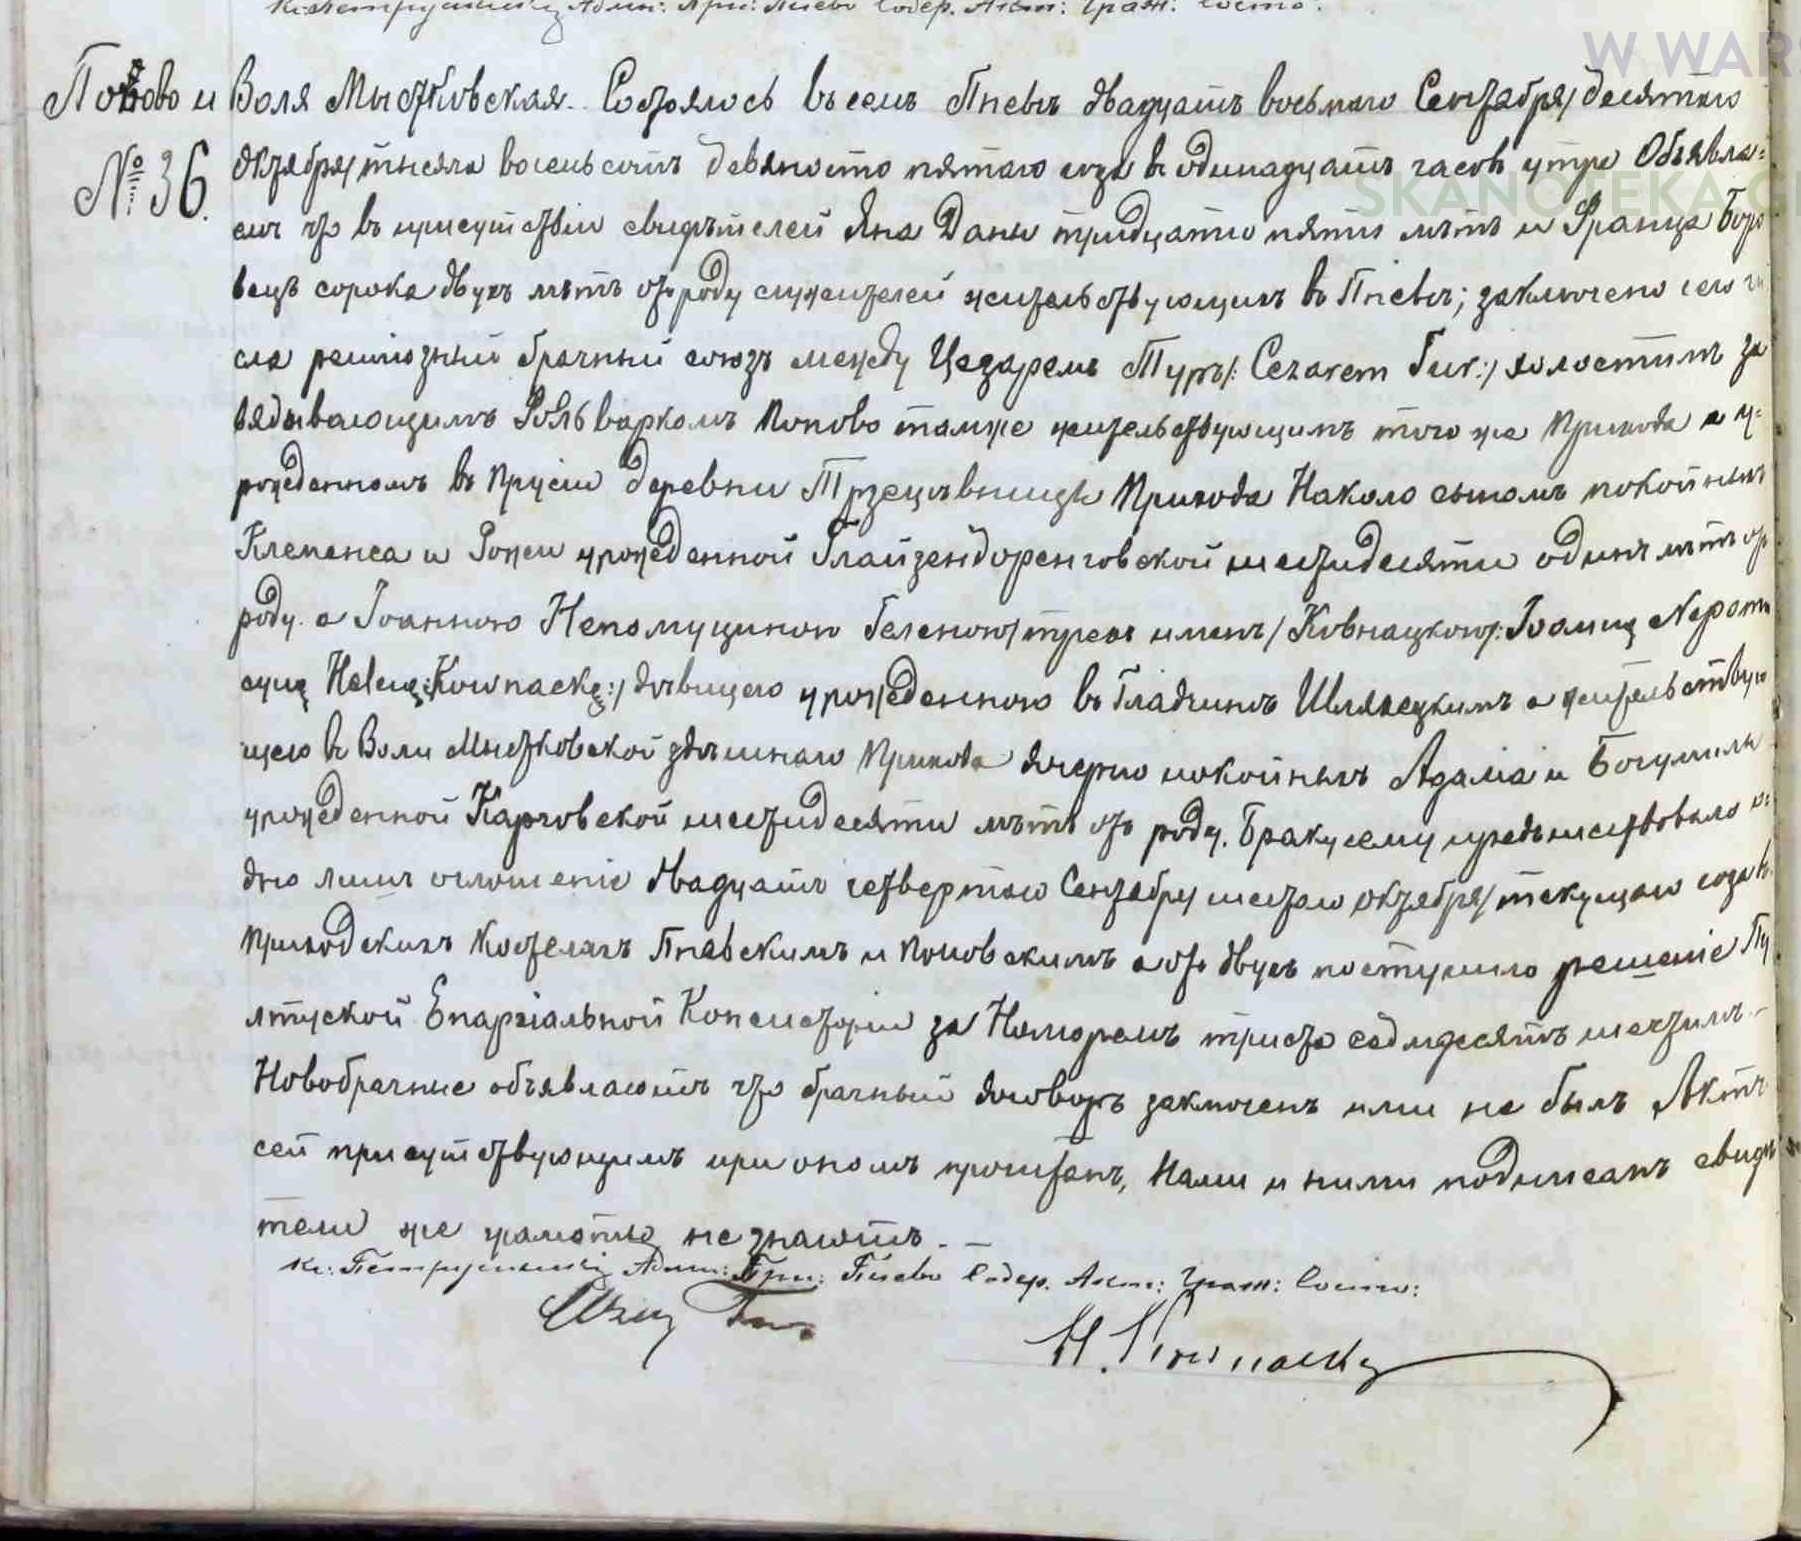 W WARS
SKANOTEKA.G
Адми: При: Гнево Содер. Акт: Граж: Состо:
Попово и Воля Мыстковская. Состоялось въ селѣ Пневѣ двадцать восьмаго Сентября/десятаго
№ 36.
Октября/тысяча восемьсотъ девяносто пятаго года въ одинадцать часовъ утра Объявля=
емъ что въ присутствіи свидѣтелей Яна Даны тридцати пяти лѣтъ и Франца
сорока двухъ лѣтъ отъ роду служителей жительствующихъ въ Пневѣ; заключено сего чи
сла религіозный брачный союзъ между Цезаремъ Туръ/: Cezarem Tur:/ холостымъ за
вядывающимъ Фольваркомъ Попово тамже жительствующимъ того же Прихода а у=
рожденномъ въ Прусіи деревни Прихода Накло сыномъ покойныхъ
Клеменса и Розіи урожденной шестидесяти одинъ лѣтъ отъ
роду. а Іоанною Непомуциною Геленою/трехъ именъ/ Ковнацкою/: Joanną Nepomu
ceną Heleną Kownacką:/ дѣвицею урожденною въ Гладчинѣ Шляхецкимъ а жительствую
щею въ Воли Мыстковской здѣшнаго Прихода дочерью покойныхъ Адама и Богумилы
урожденной Карчовской шестидесяти лѣтъ отъ роду. Браку сему предшествовало о:
дно лишь оглошеніе двадцать четвертаго Сентября/шестаго Октября/текущаго года въ
Приходскихъ Костелахъ Пневскимъ и Поповскимъ а отъ двухъ поступило решеніе Пу
лтуской Епархіальной Консисторіи за Номеромъ триста седмдесятъ шестымъ. –
Новобрачные объявляютъ что брачный договоръ заключенъ ими не былъ Актъ
сей присутствующимъ при ономъ прочитанъ, Нами и ними подписанъ свидѣ
тели же грамоты не знаютъ. –
Кс: Адми: При: Пнево Содер. Акт: Граж: Состо:
H. Kownacka